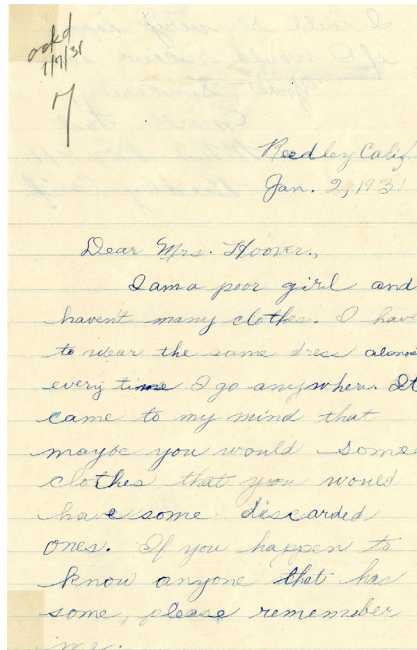 ackd
1/7/31
Reedley Calif.
Jan. 2, 1931
Dear Mrs. Hoover.,
I am a poor girl and
havent many clothes. I have
to wear the same dress almos
every time I go anywhere. It
came to my mind that
mayoe you would some
clothes that you would
have some discarded
ones. If you happen to
know anyone that has
some, please remember
me.